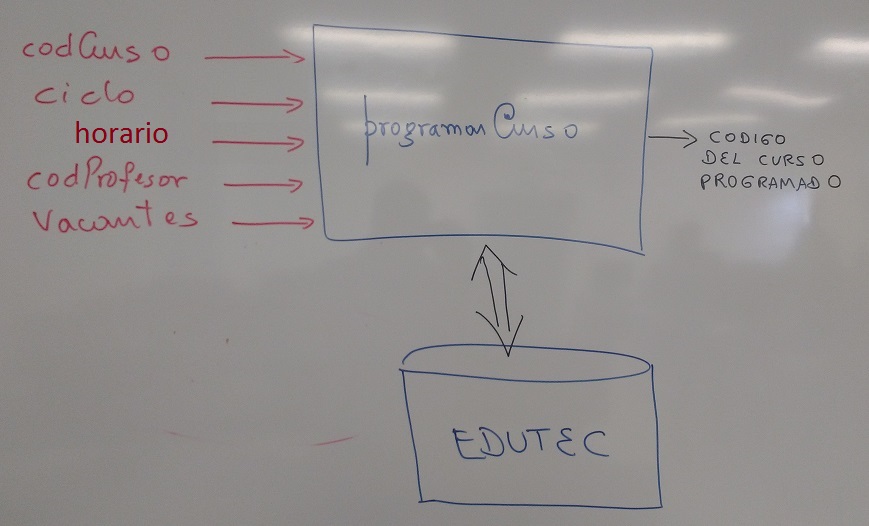 codCurso
ciclo
horario
codProfesor
Vacantes
programarCurso
CODIGO
DEL CURSO
PROGRAMADO
EDUTEC